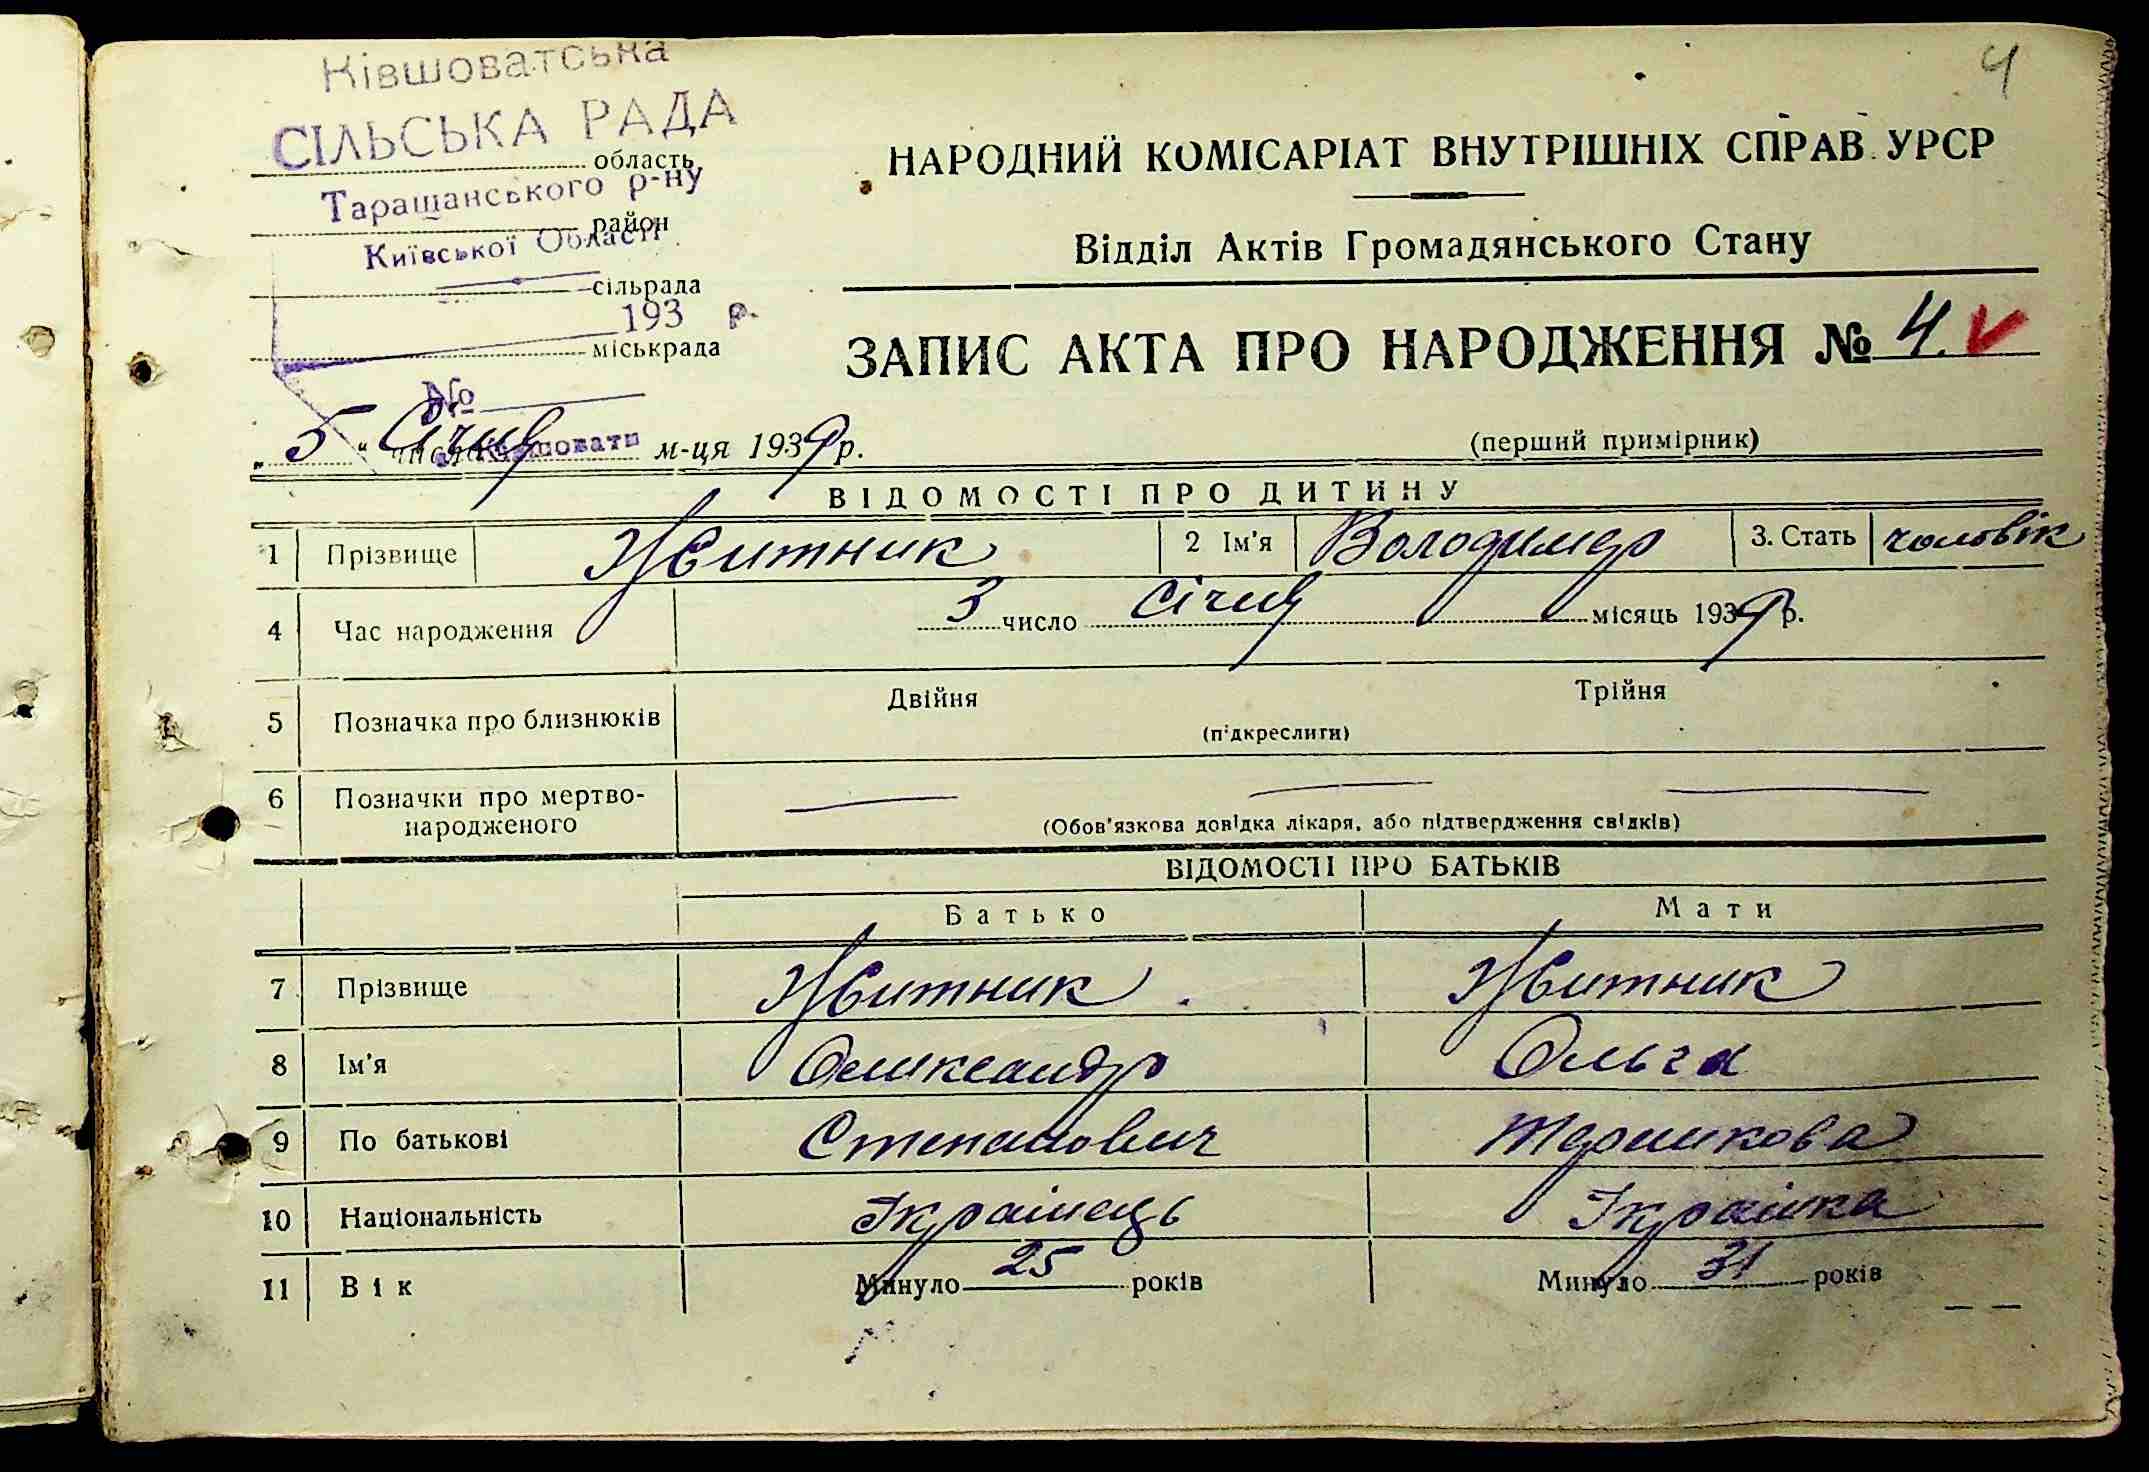 4
Ківшоватська
СІЛЬСЬКА РАДА
область
Таращанського р-ну
район
Київської Області
сільрада
193 р.
міськрада
№
НАРОДНИЙ КОМІСАРІАТ ВНУТРІШНІХ СПРАВ УРСР
Відділ Актів Громадянського Стану
ЗАПИС АКТА ПРО НАРОДЖЕННЯ № 4.
„ 5 “ числа Січня м-ця 1939 р.
(перший примірник)
ВІДОМОСТІ ПРО ДИТИНУ
1 Прізвище Квитник 2 Ім'я Володимир 3. Стать чоловік
4 Час народження 3 число Січня місяць 1939 р.
5 Позначка про близнюків Двійня Трійня
(підкреслити)
6 Позначки про мертво-
народженого
(Обов'язкова довідка лікаря, або підтвердження свідків)
ВІДОМОСТІ ПРО БАТЬКІВ
Батько Мати
7 Прізвище Квитник Квитник
8 Ім'я Олександр Ольга
9 По батькові Степанович
10 Національність Українець Українка
11 Вік Минуло 25 років Минуло 31 років